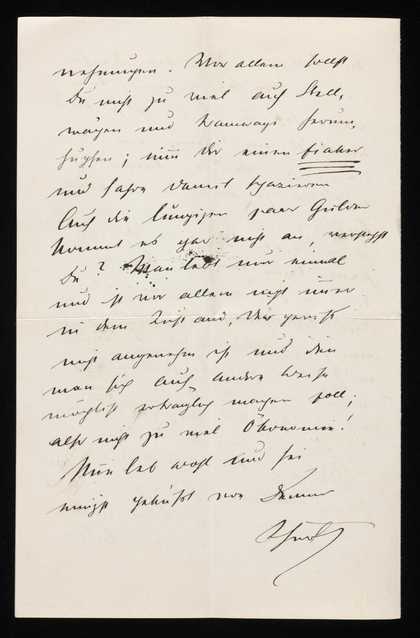 nehmungen. Vor allem sollst
Du nicht zu viel auf Stell-
wägen und Tramways herum-
hupfen; nimm Dir einen Fiaker
und fahre damit spazieren
Auf die lumpigen paar Gulden
kommt es gar nicht an, verstehst
Du? Man lebt nur einmal
und ist vor allem nicht immer
in dem Zustand, der gewiß
nicht angenehm ist und den
man sich auf andere Weise
möglichst erträglich machen soll;
also nicht zu viel Ökonomie!
Nun leb wohl und sei
innigst geküßt von Deinem